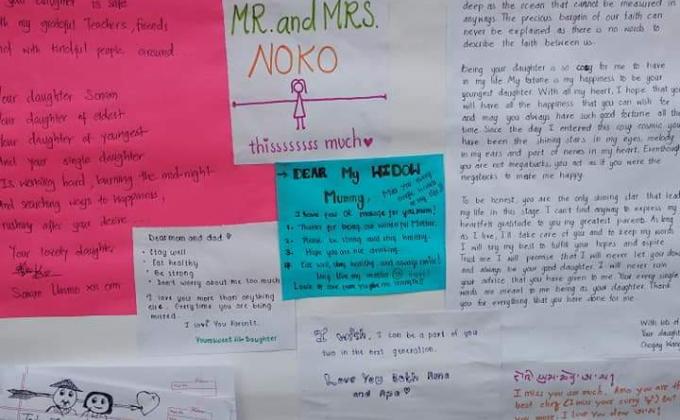 your daughter is safe
my grateful Teachers, friends
with kindful people around
Your daughter Sonam
Your daughter of eldest
Your daughter of youngest
And your single daughter
Is working hard, burning the mid-night
And searching ways to happiness,
rushing after your desire...
Your lovely daughter
Sonam
MR. and MRS.
NOKO
thisssssssss much
DEAR My WIDOW
Mummy,
I have you OR message for you, mum!
1. Thanks for being our wonderful Mother.
2. Please be strong and stay healthy.
3. Hope you are not drinking.
4. Eat well, stay healthy, and always smile!
Long live my mother
Dear mom and dad
• Stay well
• Eat healthy
• Be strong
• Don't worry about me too much
I love you more than anything
else. Everytime you are being
missed.
I love You Parents.
Daughter
I wish, I can be a part of you
two in the next generation.
Love You Both Ama
and Apa
deep as the ocean that cannot be measured in
anyways. The precious bargain of our faith can
never be explained as there is no words to
describe the faith between us.
Being your daughter is so cosy for me to have
in my life. My fortune is my happiness to be your
youngest daughter. With all my heart, I hope that you
will have all the happiness that you can wish for
and may you always have such good fortune all the
time. Since the day I entered this cosy cosmic you
have been the shining stars in my eyes, melody
in my ears and part of nerves in my heart. Eventhough
you are not megabucks, you act as if you were the
megabucks to make me happy.
To be honest, you are the only shining star that lead
my life in this stage. I can't find anyway to express my
heartfelt gratitude to you my greatest parents. As long
as I live, I'll take care of you and to keep my words
I will try my best to fulfill your hopes and aspire
Trust me I will promise that I will never let you down
and always be your good daughter. I will never
your advice that you have given to me. Your every single
words are meant to me being as your daughter. Thank
you for everything that you have done for me.
With lots of
Your daughter
I miss you so much, Ama you are the
best chef (I miss your curry) But
you more. I love you